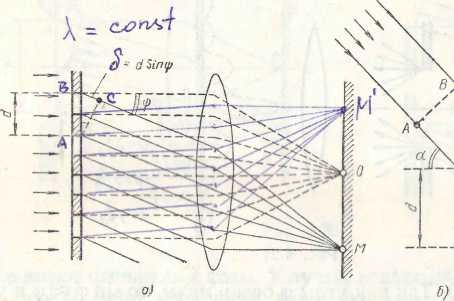 λ = const
δ = d sinφ
B
C
φ
d
A
M'
O
M
a)
B
A
α
d
б)